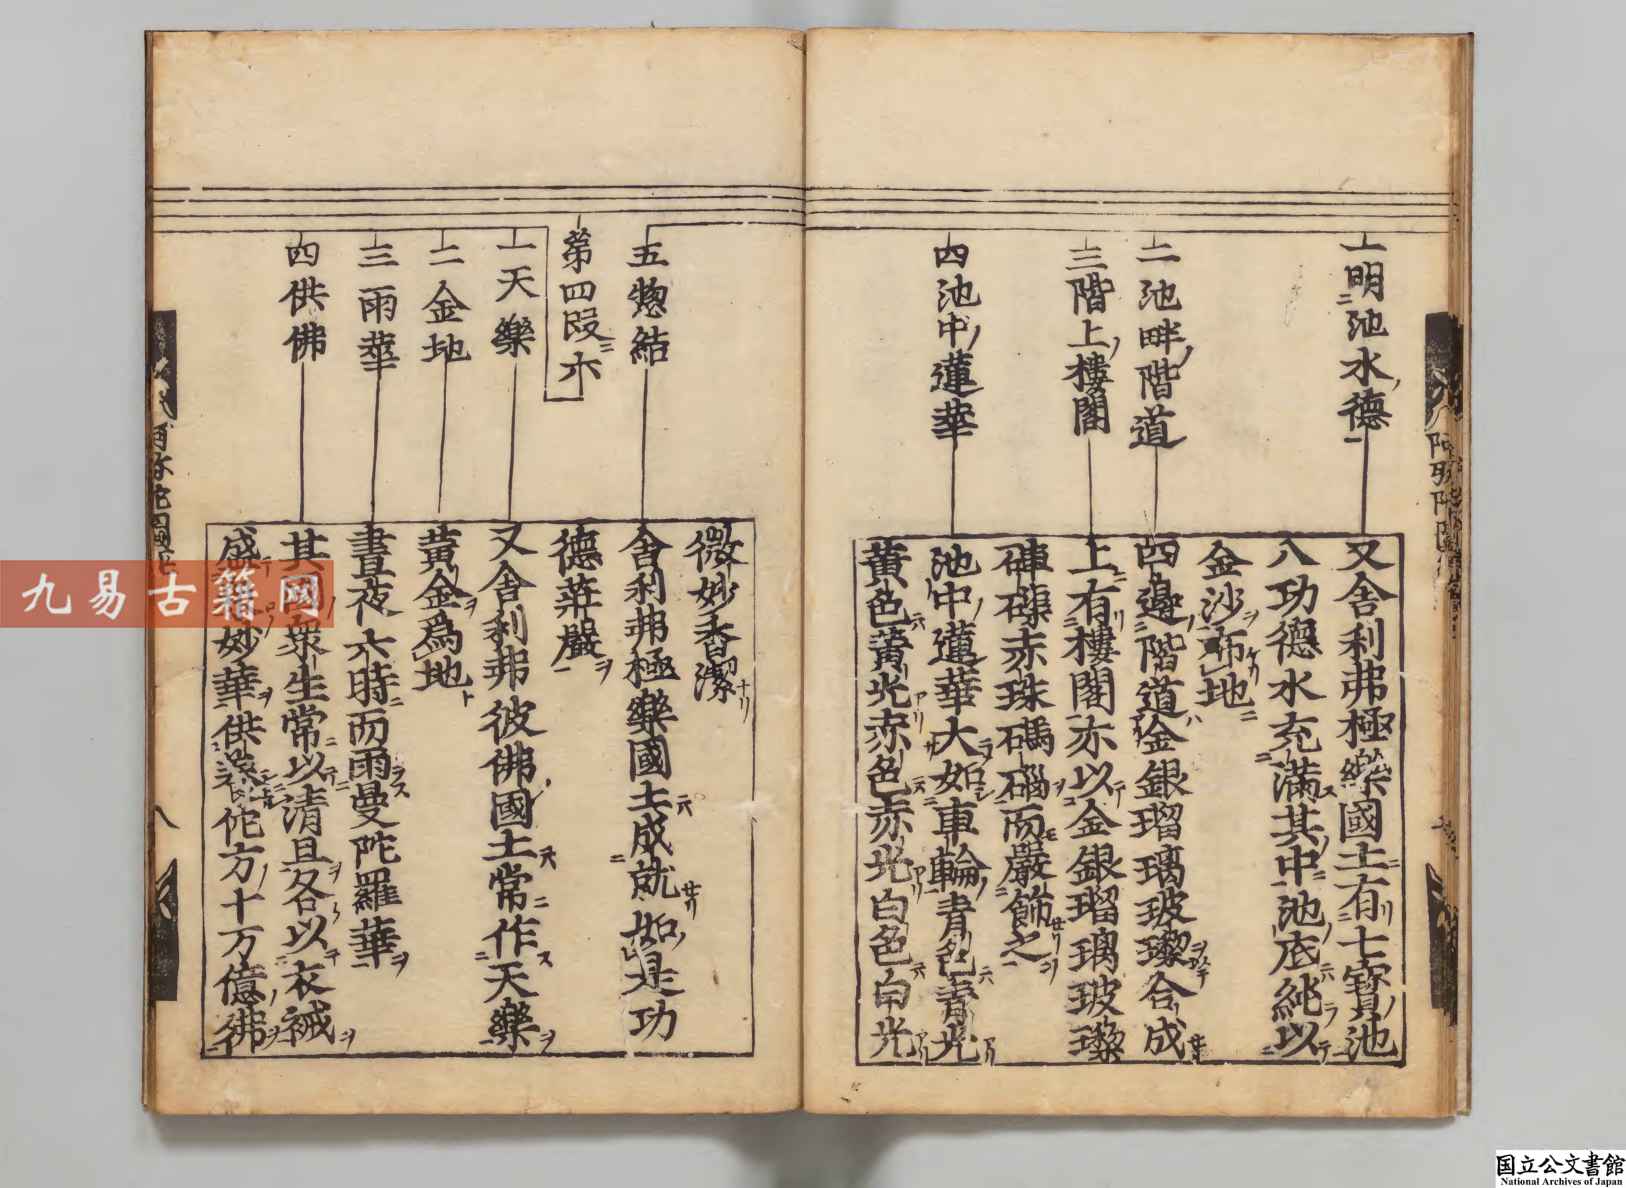 一明池水德
二池畔階道
三階上樓閣
四池中蓮華
又舍利弗極樂國土有七寶池
八功德水充滿其中池底純以
金沙布地
四邊階道金銀瑠璃玻瓈合成
上有樓閣亦以金銀瑠璃玻瓈
硨磲赤珠碼碯而嚴飾之
池中蓮華大如車輪青色青光
黃色黃光赤色赤光白色白光
五惣結
第四段亦
一天樂
二金地
三雨華
四供佛
微妙香潔
舍利弗極樂國土成就如是功
德莊嚴
又舍利弗彼佛國土常作天樂
黃金爲地
晝夜六時而雨曼陀羅華
其 衆生常以清旦各以衣裓
盛 妙華供養佗方十万億佛
九易古籍网
国立公文書館
National Archives of Japan